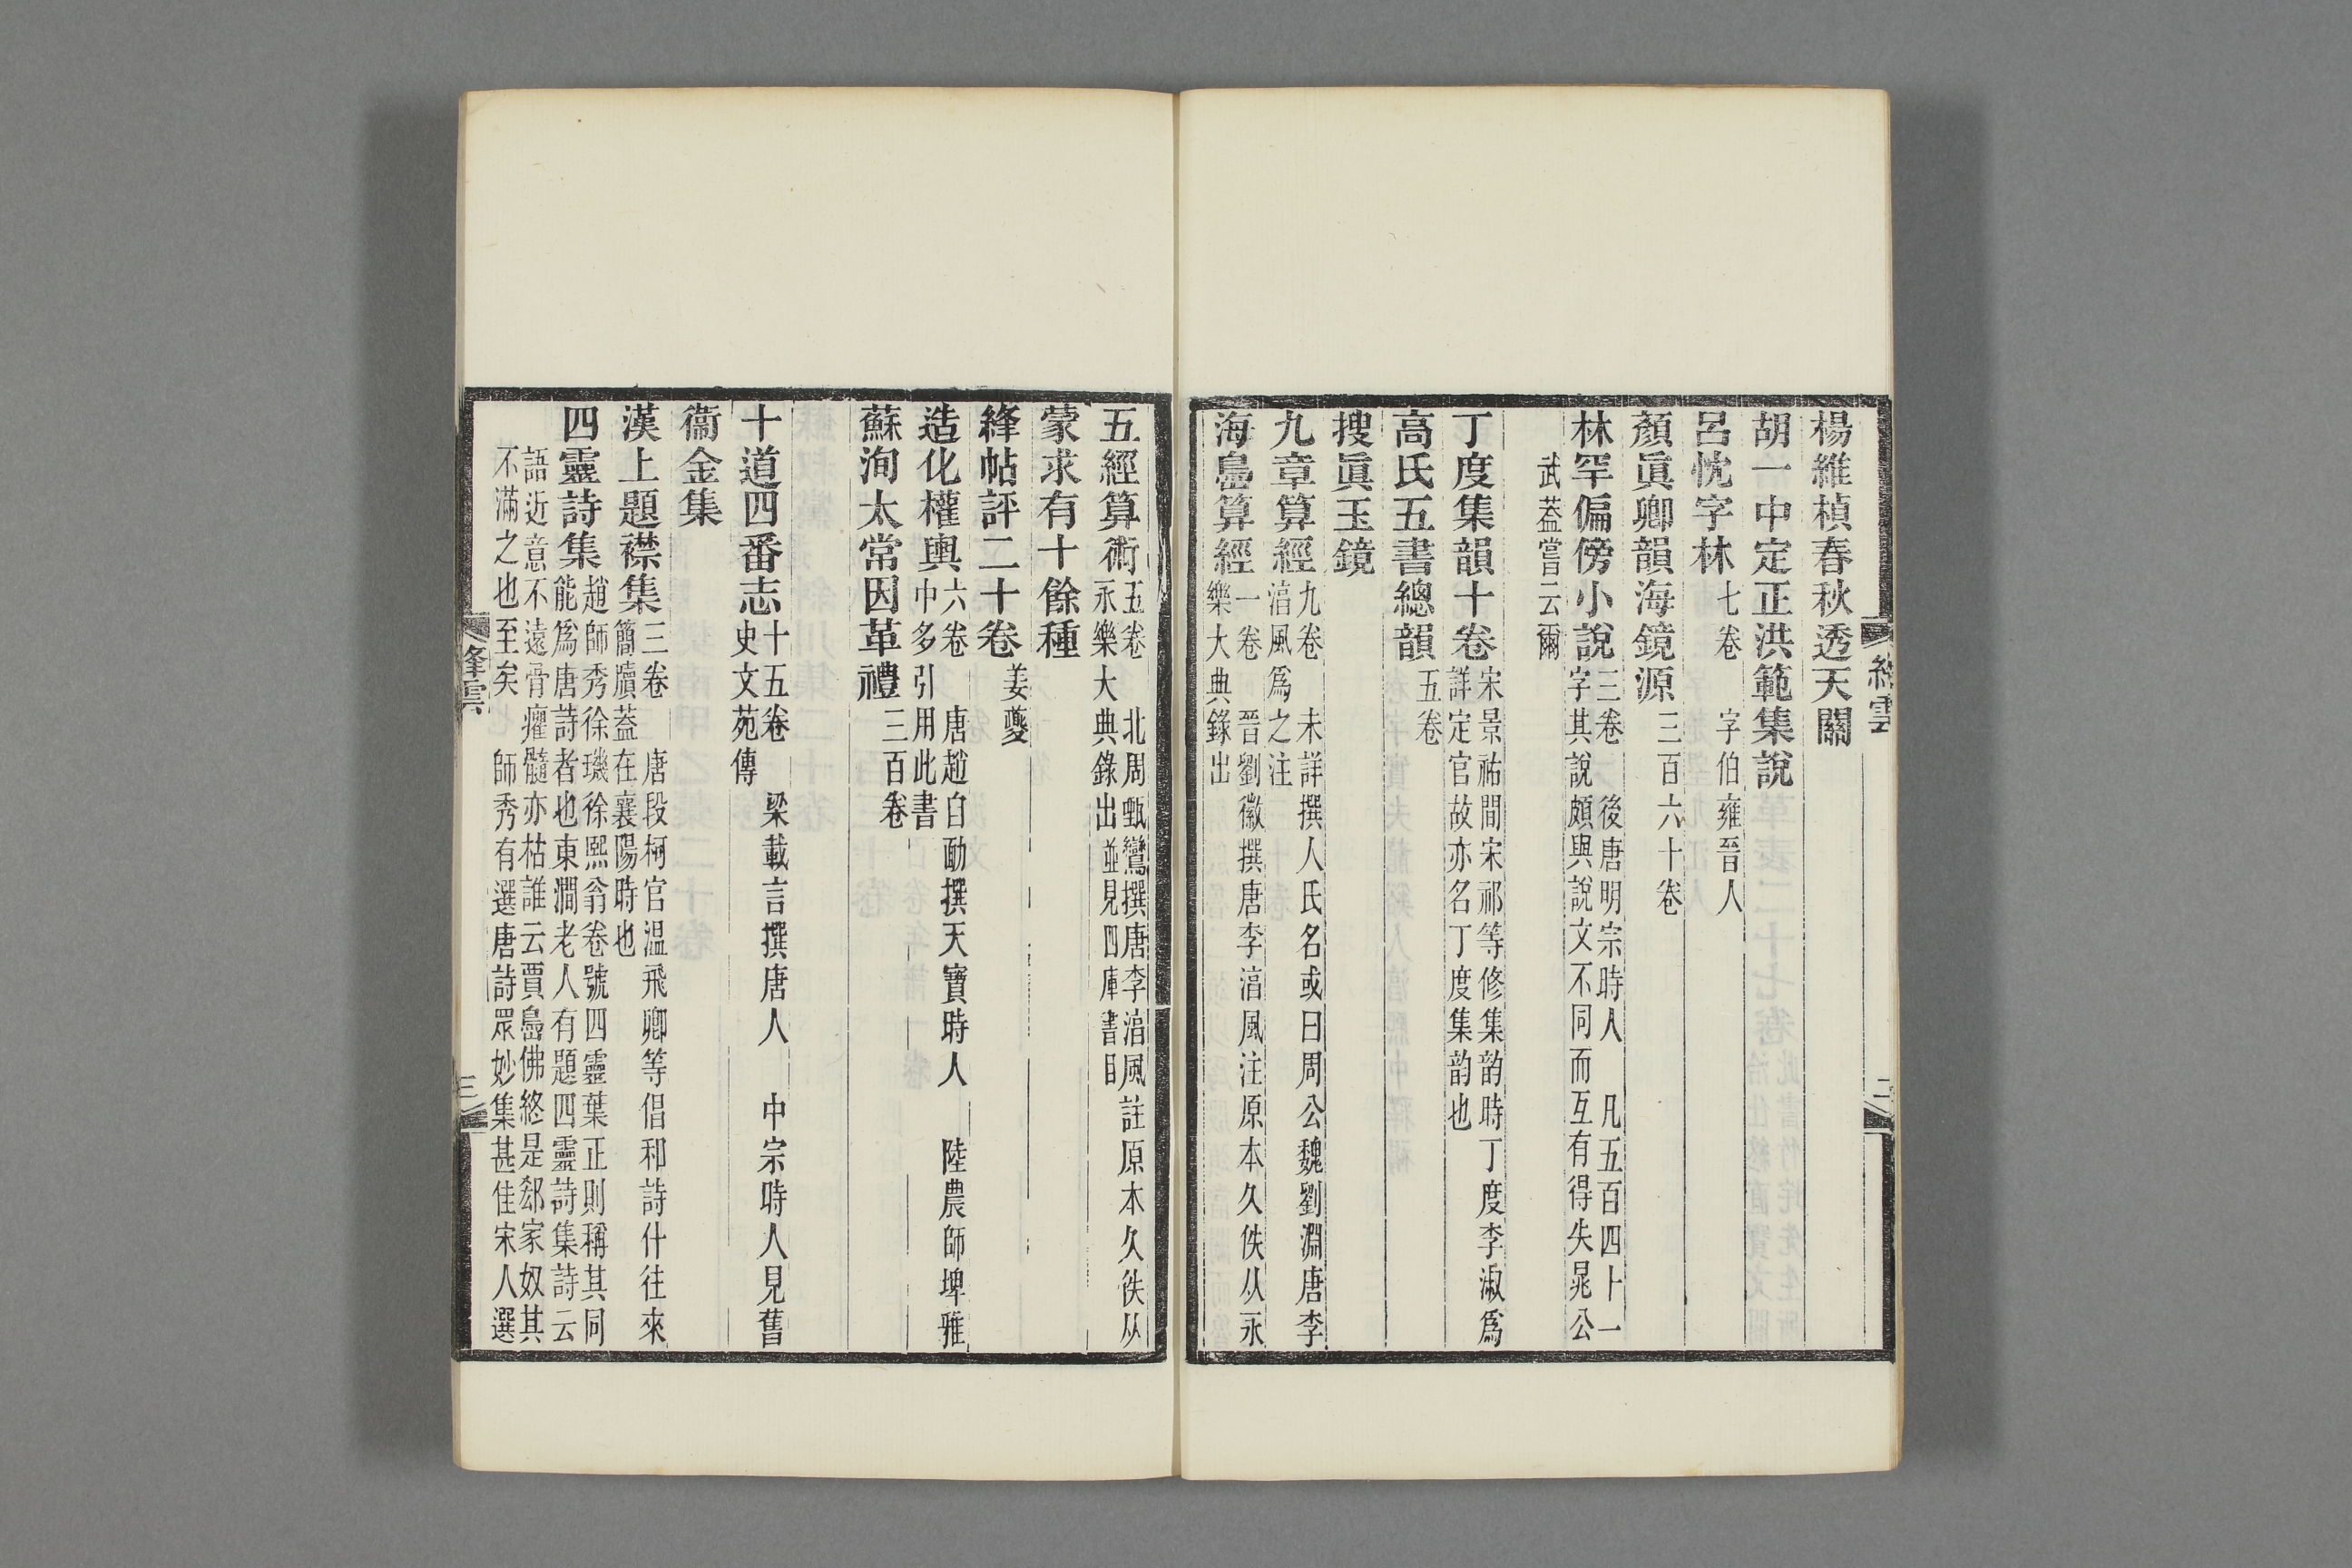 楊維楨春秋透天關
胡一中定正洪範集說
呂忱字林七卷 字伯雍晉人
顏眞卿韻海鏡源三百六十卷
林罕偏傍小說三卷 後唐明宗時人 凡五百四十一
字其說頗與說文不同而互有得失晁公
武蓋嘗云爾
丁度集韻十卷宋景祐間宋祁等修集韵時丁度李淑爲
詳定官故亦名丁度集韵也
高氏五書總韻五卷
搜眞玉鏡
九章算經九卷 未詳撰人氏名或曰周公魏劉淵唐李
淳風爲之注
海島算經一卷 晉劉徽撰唐李淳風注原本久佚从永
樂大典錄出
五經算術五卷 北周甄鸞撰唐李淳風註原本久佚从
永樂大典錄出並見四庫書目
蒙求有十餘種
絳帖評二十卷姜夔
造化權輿六卷 唐趙自勔撰天寶時人 陸農師埤雅
中多引用此書
蘇洵太常因革禮三百卷
十道四番志十五卷 梁載言撰唐人 中宗時人見舊
史文苑傳
衞金集
漢上題襟集三卷 唐段柯官温飛卿等倡和詩什往來
簡牘蓋在襄陽時也
四靈詩集趙師秀徐璣徐熙翁卷號四靈葉正則稱其同
能爲唐詩者也東澗老人有題四靈詩集詩云
語近意不遠骨癯髓亦枯誰云賈島佛終是郄家奴其
不滿之也至矣 師秀有選唐詩眾妙集甚佳宋人選
絳雲
二
絳雲
三